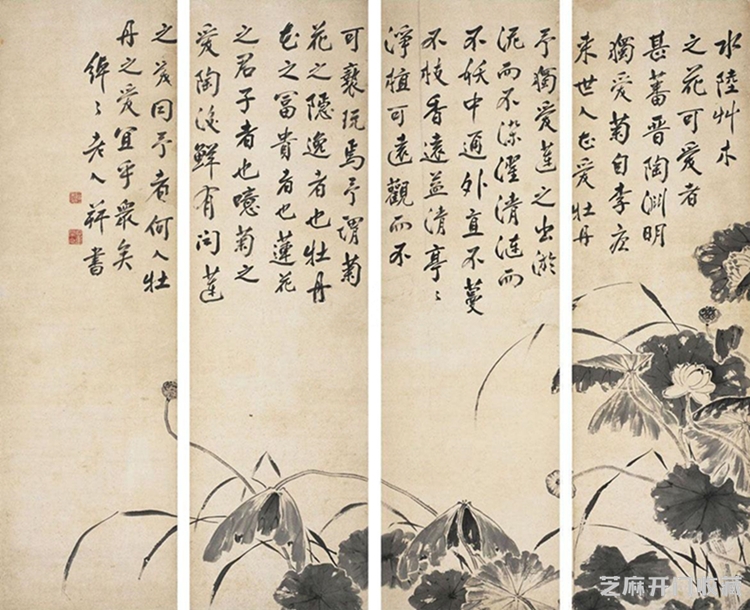 水陸艸木
之花可愛者
甚蕃晉陶渊明
獨愛菊自李唐
来世人爱牡丹
予獨爱蓮之出淤
泥而不染濯清涟而
不妖中通外直不蔓
不枝香遠益清亭〻
淨植可遠觀而不
可褻玩焉予謂菊
花之隐逸者也牡丹
花之富貴者也蓮花
之君子者也噫菊之
愛陶後鮮有闻蓮
之爱同予者何人牡
丹之愛宜乎眾矣
老人祥書
芝麻开门收藏